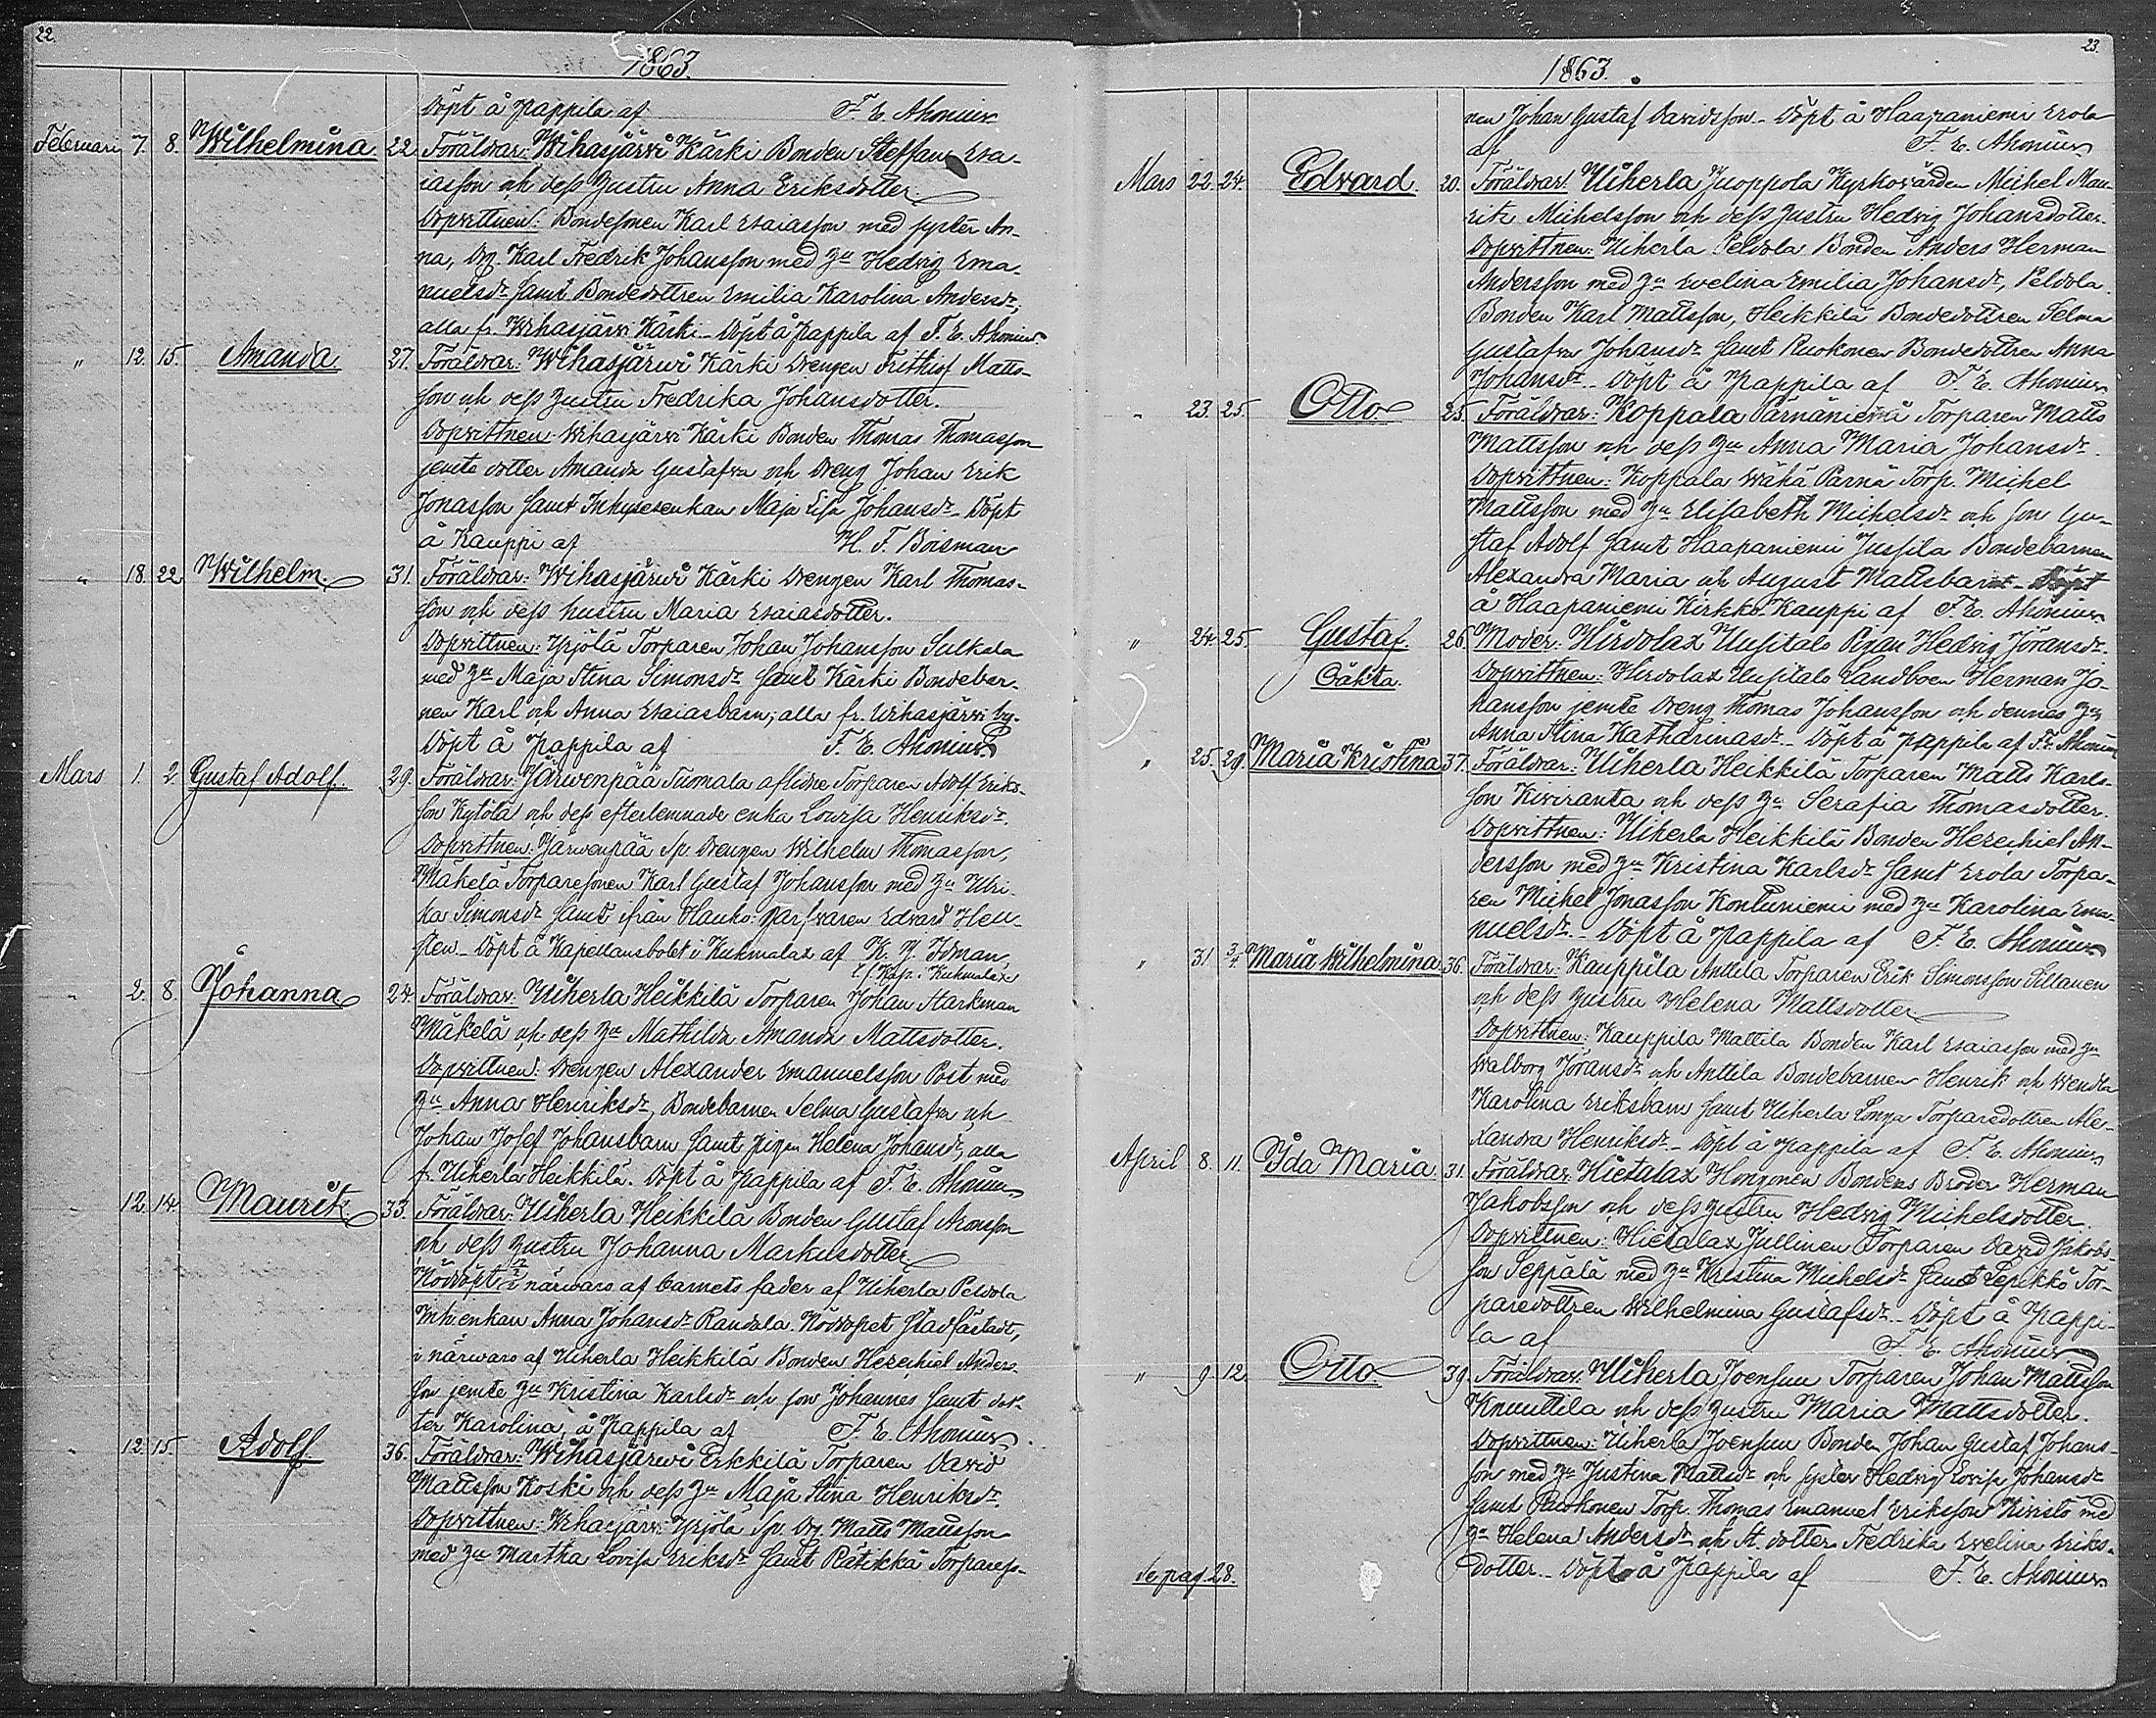 22.
1863.
Döpt å Pappila af F. E. Ahonius
Februari 7. 8. Wilhelmina. 22. Föräldrar: Wihasjärvi Kärki Bonden Steffan Esa-
iasson och dess hustru Anna Eriksdotter.
Dopvittnen: Bondesonen Karl Esaiasson med syster An-
na, Drg. Karl Fredrik Johansson med hu Hedvig Ema-
nuelsdr samt Bondedottren Emilia Karolina Andersdr,
alla fr. Wihasjärvi Kärki. Döpt å Pappila af F. E. Ahonius
" 12. 15. Amanda. 27. Föräldrar: Wihasjärwi Kärki Drengen Frithiof Matts-
son och dess hustru Fredrika Johansdotter.
Dopvittnen: Wihasjärvi Kärki Bonden Thomas Thomasson
jemte dotter Amanda Gustafva och Dreng Johan Erik
Jonasson samt Inhysesenkan Maja Lisa Johansdr Döpt
å Kauppi af H. F. Boisman
" 18. 22. Wilhelm. 31. Föräldrar: Wihasjärwi Kärki Drengen Karl Thomas-
son och dess hustru Maria Esaiasdotter.
Dopvittnen: Yrjölä Torparen Johan Johansson Sulkala
med hu Maja Stina Simonsdr samt Kärki Bondebar-
nen Karl och Anna Esaiasbarn; alla fr. Wihasjärwi by.
Döpt å Pappila af F. E. Ahonius
Mars 1. 2. Gustaf Adolf. 29. Föräldrar: Järwenpää Tuomala aflidne Torparen Adolf Eriks-
son Kytölä och dess efterlemnade enka Lovisa Henriksdr.
Dopvittnen: Järwenpää Sp. Drengen Wilhelm Thomasson,
Mäkelä Torparesonen Karl Gustaf Johansson med hu Ulri-
ka Simonsdr samt ifrån Hauho: Garfvaren Edvard Hell-
sten Döpt å Kapellansbolet i Kuhmalax af K. J. Idman,
t. f. Kap. i Kuhmalax
" 2. 8. Johanna 24. Föräldrar: Uiherla Heikkilä Torparen Johan Starkman
Mäkelä och dess hu Mathilda Amanda Mattsdotter.
Dopvittnen: Drengen Alexander Emanuelsson Post med
hu Anna Henriksdr, Bondebarnen Selma Gustafva och
Johan Josef Johansbarn samt pigan Helena Johansdr, alla
fr. Uiherla Heikkilä. Döpt å Pappila af F. E. Ahonius
" 12. 14. Maurits 33. Föräldrar: Uiherla Heikkilä Bonden Gustaf Aronsson
och dess hustru Johanna Markusdotter.
Nöddöpt i närwaro af barnets fader af Uiherla Peldola
Inh:enkan Anna Johansdr Randala. Nöddopet stadfästadt,
i närwaro af Uiherla Heikkilä Bonden Hezechiel Anders-
son jemte hu Kristina Karlsdr och son Johannes samt dot-
ter Karolina, å Pappila af F. E. Ahonius
" 12. 15. Adolf. 36. Föräldrar: Wihasjärwi Erkkilä Torparen David
Mattsson Koski och dess hu Maja Stina Henriksdr.
Dopvittnen: Wihasjärvi Yrjölä Sp. Drg Matts Mattsson
med hu Martha Lovisa Eriksdr samt Rätikkä Torpareso-
23.
1863.
nen Johan Gustaf Davidsson. Döpt å Haapaniemi Erola
af F. E. Ahonius
Mars 22. 24. Edvard. 20. Föräldrar: Uiherla Juoppola Kyrkovärden Michel Mau-
ritz Michelsson och dess hustru Hedvig Johansdotter.
Dopvittnen: Uiherla Peldola Bonden Anders Herman
Andersson med hu Evelina Emilia Johansdr, Peldola
Bonden Karl Mattsson, Heikkilä Bondedottren Selma
Gustafva Johansdr samt Ruokonen Bondedottren Anna
Johansdr. Döpt å Pappila af F. E. Ahonius
" 23. 25. Otto 25. Föräldrar: Koppala Pärnäniemi Torparen Matts
Mattsson och dess hu Anna Maria Johansdr.
Dopvittnen: Koppala Wähä Pärnä Torp. Michel
Mattsson med hu Elisabeth Michelsdr och son Gu-
staf Adolf samt Haapaniemi Jussila Bondebarnen
Alexandra Maria och August Mattsbarn. Döpt
å Haapaniemi Kirkko-Kauppi af F. E. Ahonius
" 24. 25. Gustaf. 26. Moder: Hirdolax Uusitalo Pigan Hedvig Jöransdr.
Oäkta. Dopvittnen: Hirdolax Uusitalo Landboen Herman Jo-
hansson jemte Dreng Thomas Johansson och dennes hu
Anna Stina Katharinasdr. Döpt å Pappila af F. E. Ahonius
" 25. 29. Maria Kristina 37. Föräldrar: Uiherla Heikkilä Torparen Matts Karls-
son Kiviranta och dess hu Serafia Thomasdotter.
Dopvittnen: Uiherla Heikkilä Bonden Hezechiel An-
dersson med hu Kristina Karlsdr samt Erola Torpa-
ren Michel Jonasson Kontuniemi med hu Karolina Ema-
nuelsdr. Döpt å Pappila af F. E. Ahonius
" 31. 3/4. Maria Wilhelmina 36. Föräldrar: Kauppila Anttila Torparen Erik Simonsson Sillanen
och dess hustru Helena Mattsdotter
Dopvittnen: Kauppila Mattila Bonden Karl Esaiasson med hu
Walborg Jöransdr och Anttila Bondebarnen Henrik och Wendla
Karolina Eriksbarn samt Uiherla Longa Torparedottren Ale-
xandra Henriksdr. Döpt å Pappila af F. E. Ahonius
April 8. 11. Ida Maria. 31. Föräldrar: Hietalax Hongonen Bondens Broder Herman
Jakobsson och dess hustru Hedvig Michelsdotter.
Dopvittnen: Hietalax Jullinen Torparen David Jakobs-
son Seppälä med hu Kristina Michelsdr samt Lepikkö Tor-
paredottren Wilhelmina Gustafsdr. Döpt å Pappi-
la af F. E. Ahonius
" 9. 12. Otto 39. Föräldrar: Uiherla Joensuu Torparen Johan Mattsson
Knuuttila och dess hustru Maria Mattsdotter.
Dopvittnen: Uiherla Joensuu Bonden Johan Gustaf Johans-
son med hu Justina Mattsdr och syster Hedvig Lovisa Johansdr
samt Ruokonen Torp. Thomas Emanuel Eriksson Kivistö med
hu Helena Andersdr och St. dotter Fredrika Evelina Eriks-
dotter. Döpt å Pappila af F. E. Ahonius
Se pag. 28.